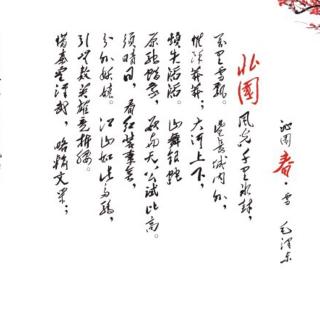 沁园春·雪 毛泽东
北國風光千里冰封,
万里雪飘。望长城内外,
惟馀莽莽;大河上下,
顿失滔滔。山舞银蛇,
原驰蜡象,欲与天公试比高。
须晴日,看红装素裹,
分外妖娆。江山如此多娇,
引无数英雄竞折腰。
惜秦皇汉武,略输文采;